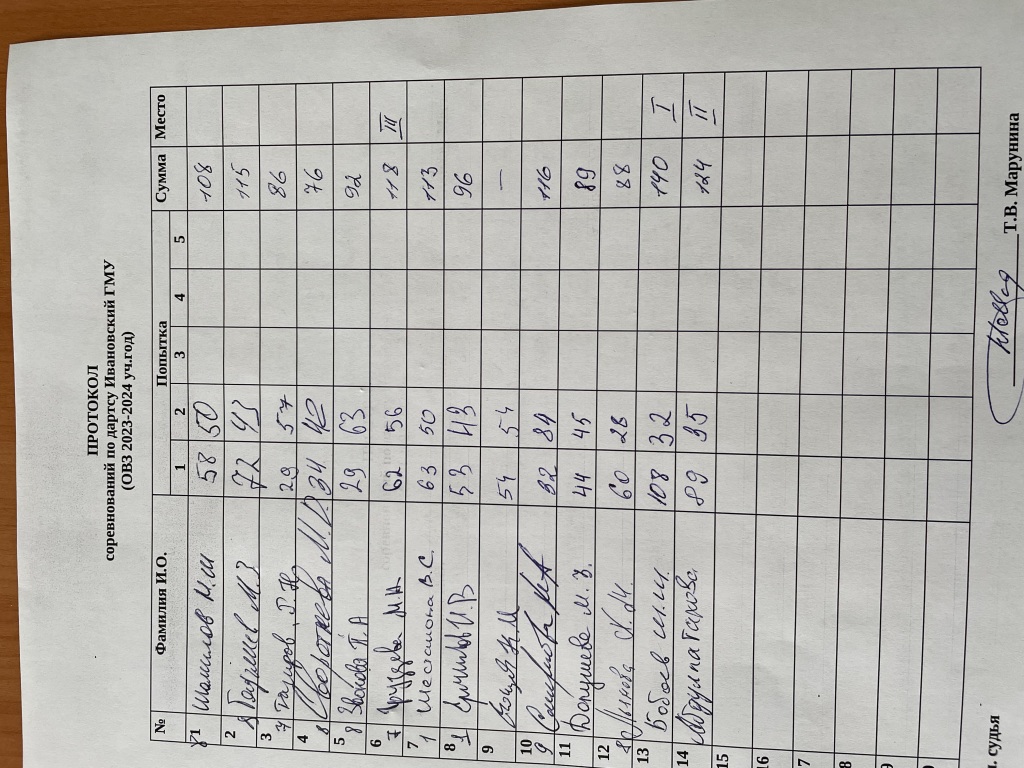 ПРОТОКОЛ
соревнований по дартсу Ивановский ГМУ
(ОВЗ 2023-2024 уч.год)
№ Фамилия И.О. Попытка Сумма Место
1 2 3 4 5
1 Шамилов М.Ш 58 50 108
2 М.З 72 43 115
3 29 57 86
4 М.Д. 34 42 76
5 Зволова П.А 29 63 92
6 Груздева М.Н. 62 56 118 III
7 Шестимона В.С. 63 50 113
8 И.В 53 43 96
9 54 54 —
10 Смирнова М.А 32 84 116
11 М.З. 44 45 89
12 60 28 88
13 Бобоев Ш.И. 108 32 140 I
14 Абдулпатахова 89 35 124 II
15
16
17
8
9
0
судья Т.В. Марунина